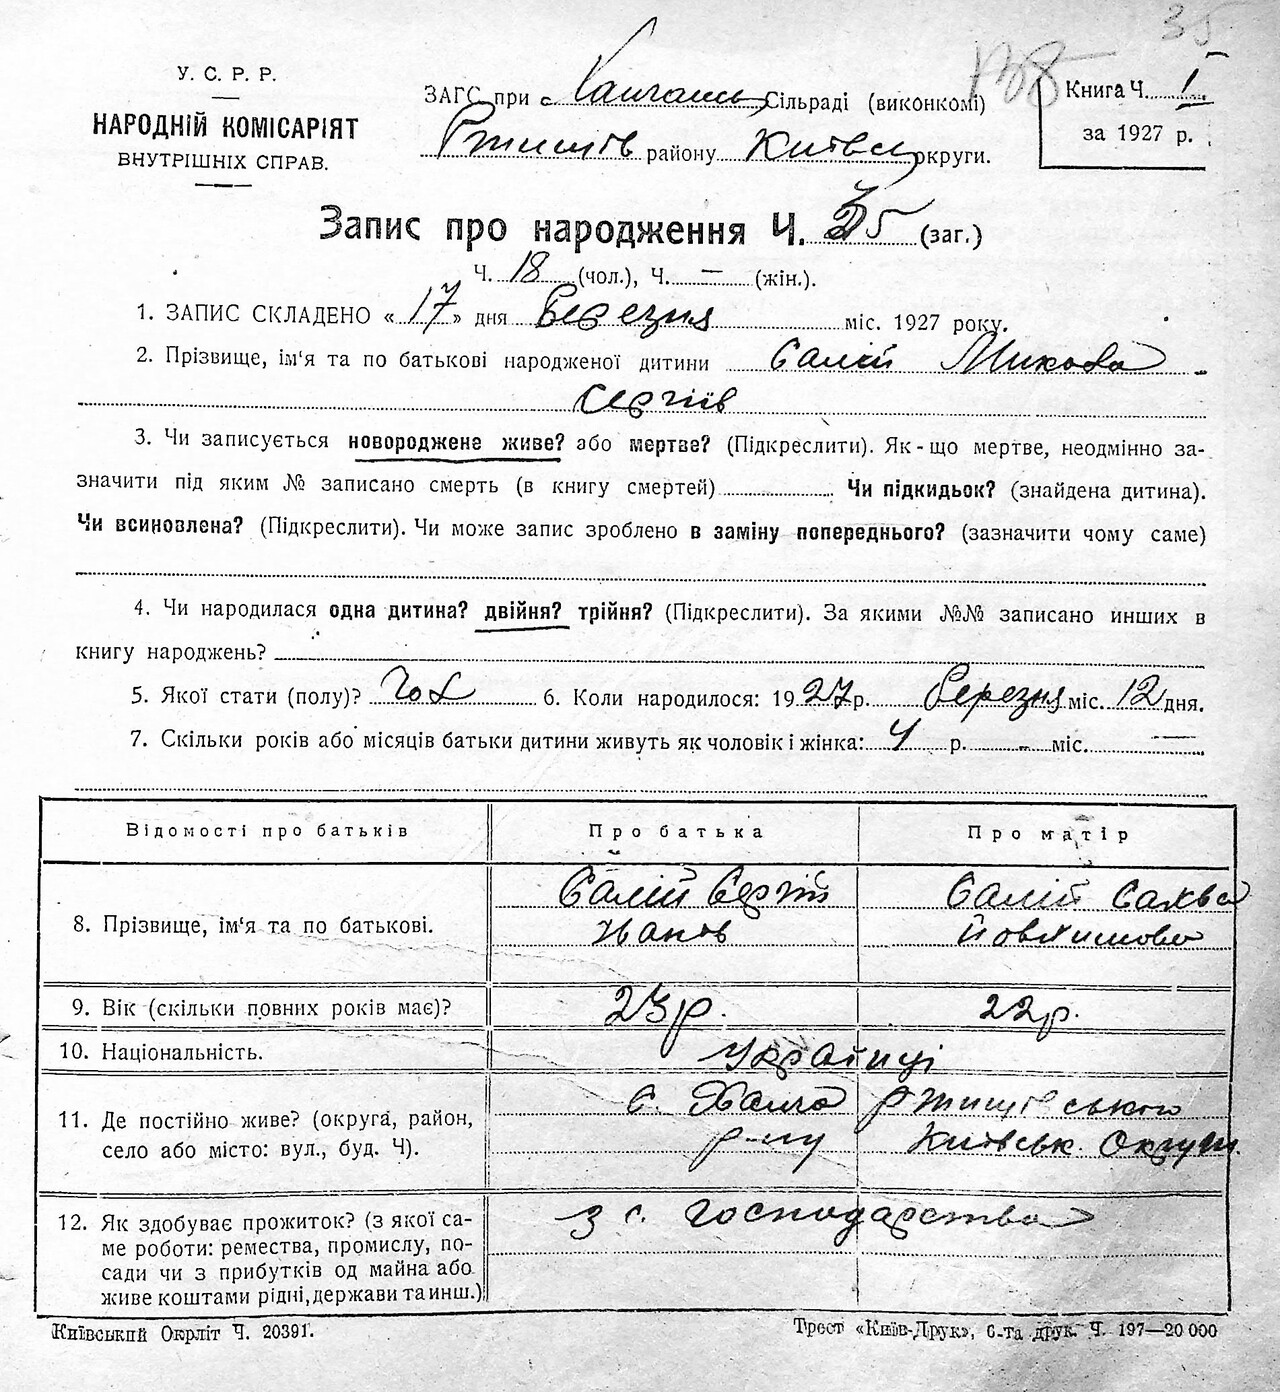 35
138
У. С. Р. Р.
НАРОДНІЙ КОМІСАРІЯТ
ВНУТРІШНІХ СПРАВ.
ЗАГС при с Сільраді (виконкомі)
Ржищів району Київськ округи.
Книга Ч. I
за 1927 р.
Запис про народження Ч. 35 (заг.)
Ч. 18 (чол.), Ч. — (жін.).
1. ЗАПИС СКЛАДЕНО «17» дня Березня міс. 1927 року.
2. Прізвище, ім'я та по батькові народженої дитини Салій Микола
Сергіїв
3. Чи записується новороджене живе? або мертве? (Підкреслити). Як-що мертве, неодмінно за-
значити під яким № записано смерть (в книгу смертей) Чи підкидьок? (знайдена дитина).
Чи всиновлена? (Підкреслити). Чи може запис зроблено в заміну попереднього? (зазначити чому саме)
4. Чи народилася одна дитина? двійня? трійня? (Підкреслити). За якими №№ записано инших в
книгу народжень?
5. Якої стати (полу)? Чол 6. Коли народилося: 1927 р. березня міс. 12 дня.
7. Скільки років або місяців батьки дитини живуть як чоловік і жінка: 4 р. - міс. —
Відомості про батьків Про батька Про матір
8. Прізвище, ім'я та по батькові.
Салій Сергій
Іванів
Салій
9. Вік (скільки повних років має)? 23р. 22р.
10. Національність. Українці
11. Де постійно живе? (округа, район,
село або місто: вул., буд. Ч).
с. Халча Ржищівського
р-ну Київськ. Округи.
12. Як здобуває прожиток? (з якої са-
ме роботи: ремества, промислу, по-
сади чи з прибутків од майна або
живе коштами рідні, держави та инш.)
З с. господарства
Київський Окрліт Ч. 20391.
Трест «Київ-Друк», 6-та друк. Ч. 197—20 000